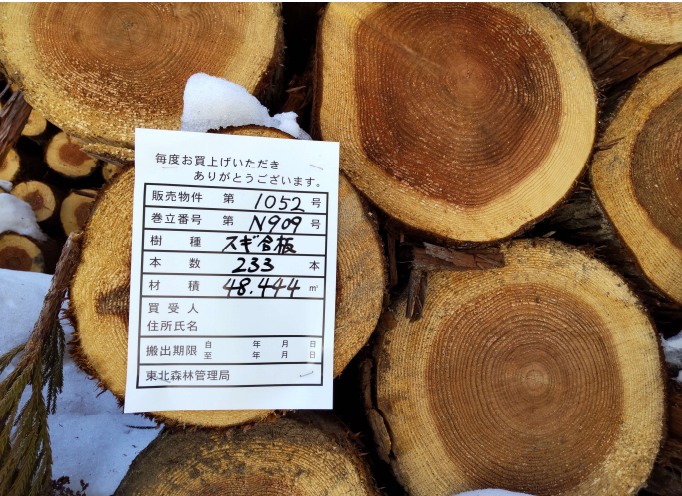 毎度お買上げいただき
ありがとうございます。
販売物件 第 1052 号
巻立番号 第 N909 号
樹 種 スギ合板
本 数 233 本
材 積 48.444 m³
買 受 人
住所氏名
搬出期限 自 年 月 日
至 年 月 日
東北森林管理局